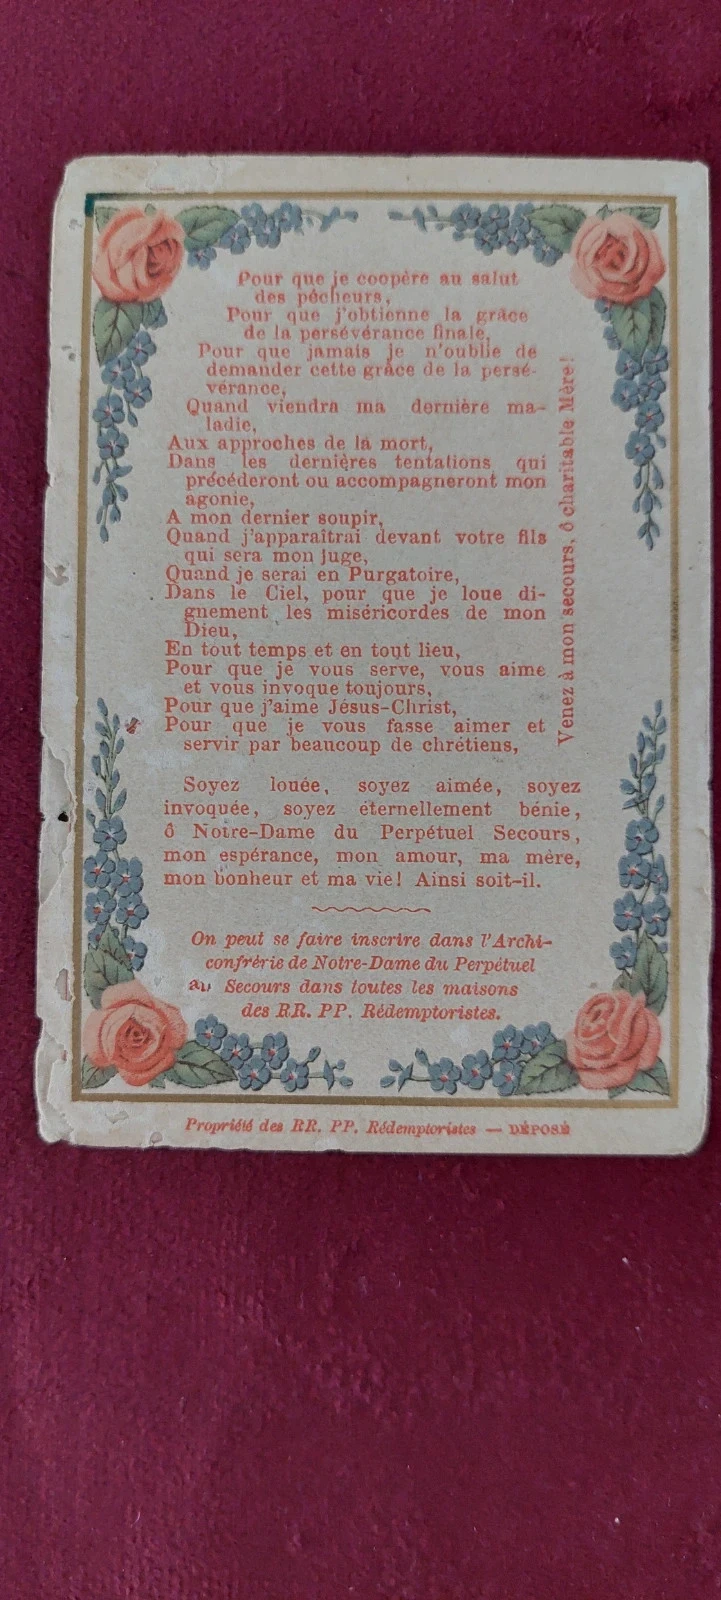 Pour que je coopère au salut
des pécheurs,
Pour que j'obtienne la grâce
de la persévérance finale,
Pour que jamais je n'oublie de
demander cette grâce de la persé-
vérance,
Quand viendra ma dernière ma-
ladie,
Aux approches de la mort,
Dans les dernières tentations qui
précéderont ou accompagneront mon
agonie,
A mon dernier soupir,
Quand j'apparaîtrai devant votre fils
qui sera mon juge,
Quand je serai en Purgatoire,
Dans le Ciel, pour que je loue di-
gnement les miséricordes de mon
Dieu,
En tout temps et en tout lieu,
Pour que je vous serve, vous aime
et vous invoque toujours,
Pour que j'aime Jésus-Christ,
Pour que je vous fasse aimer et
servir par beaucoup de chrétiens,
Venez à mon secours, ô charitable Mère!
Soyez louée, soyez aimée, soyez
invoquée, soyez éternellement bénie,
ô Notre-Dame du Perpétuel Secours,
mon espérance, mon amour, ma mère,
mon bonheur et ma vie! Ainsi soit-il.
On peut se faire inscrire dans l'Archi-
confrérie de Notre-Dame du Perpétuel
au Secours dans toutes les maisons
des RR. PP. Rédemptoristes.
Propriété des RR. PP. Rédemptoristes — DÉPOSÉ